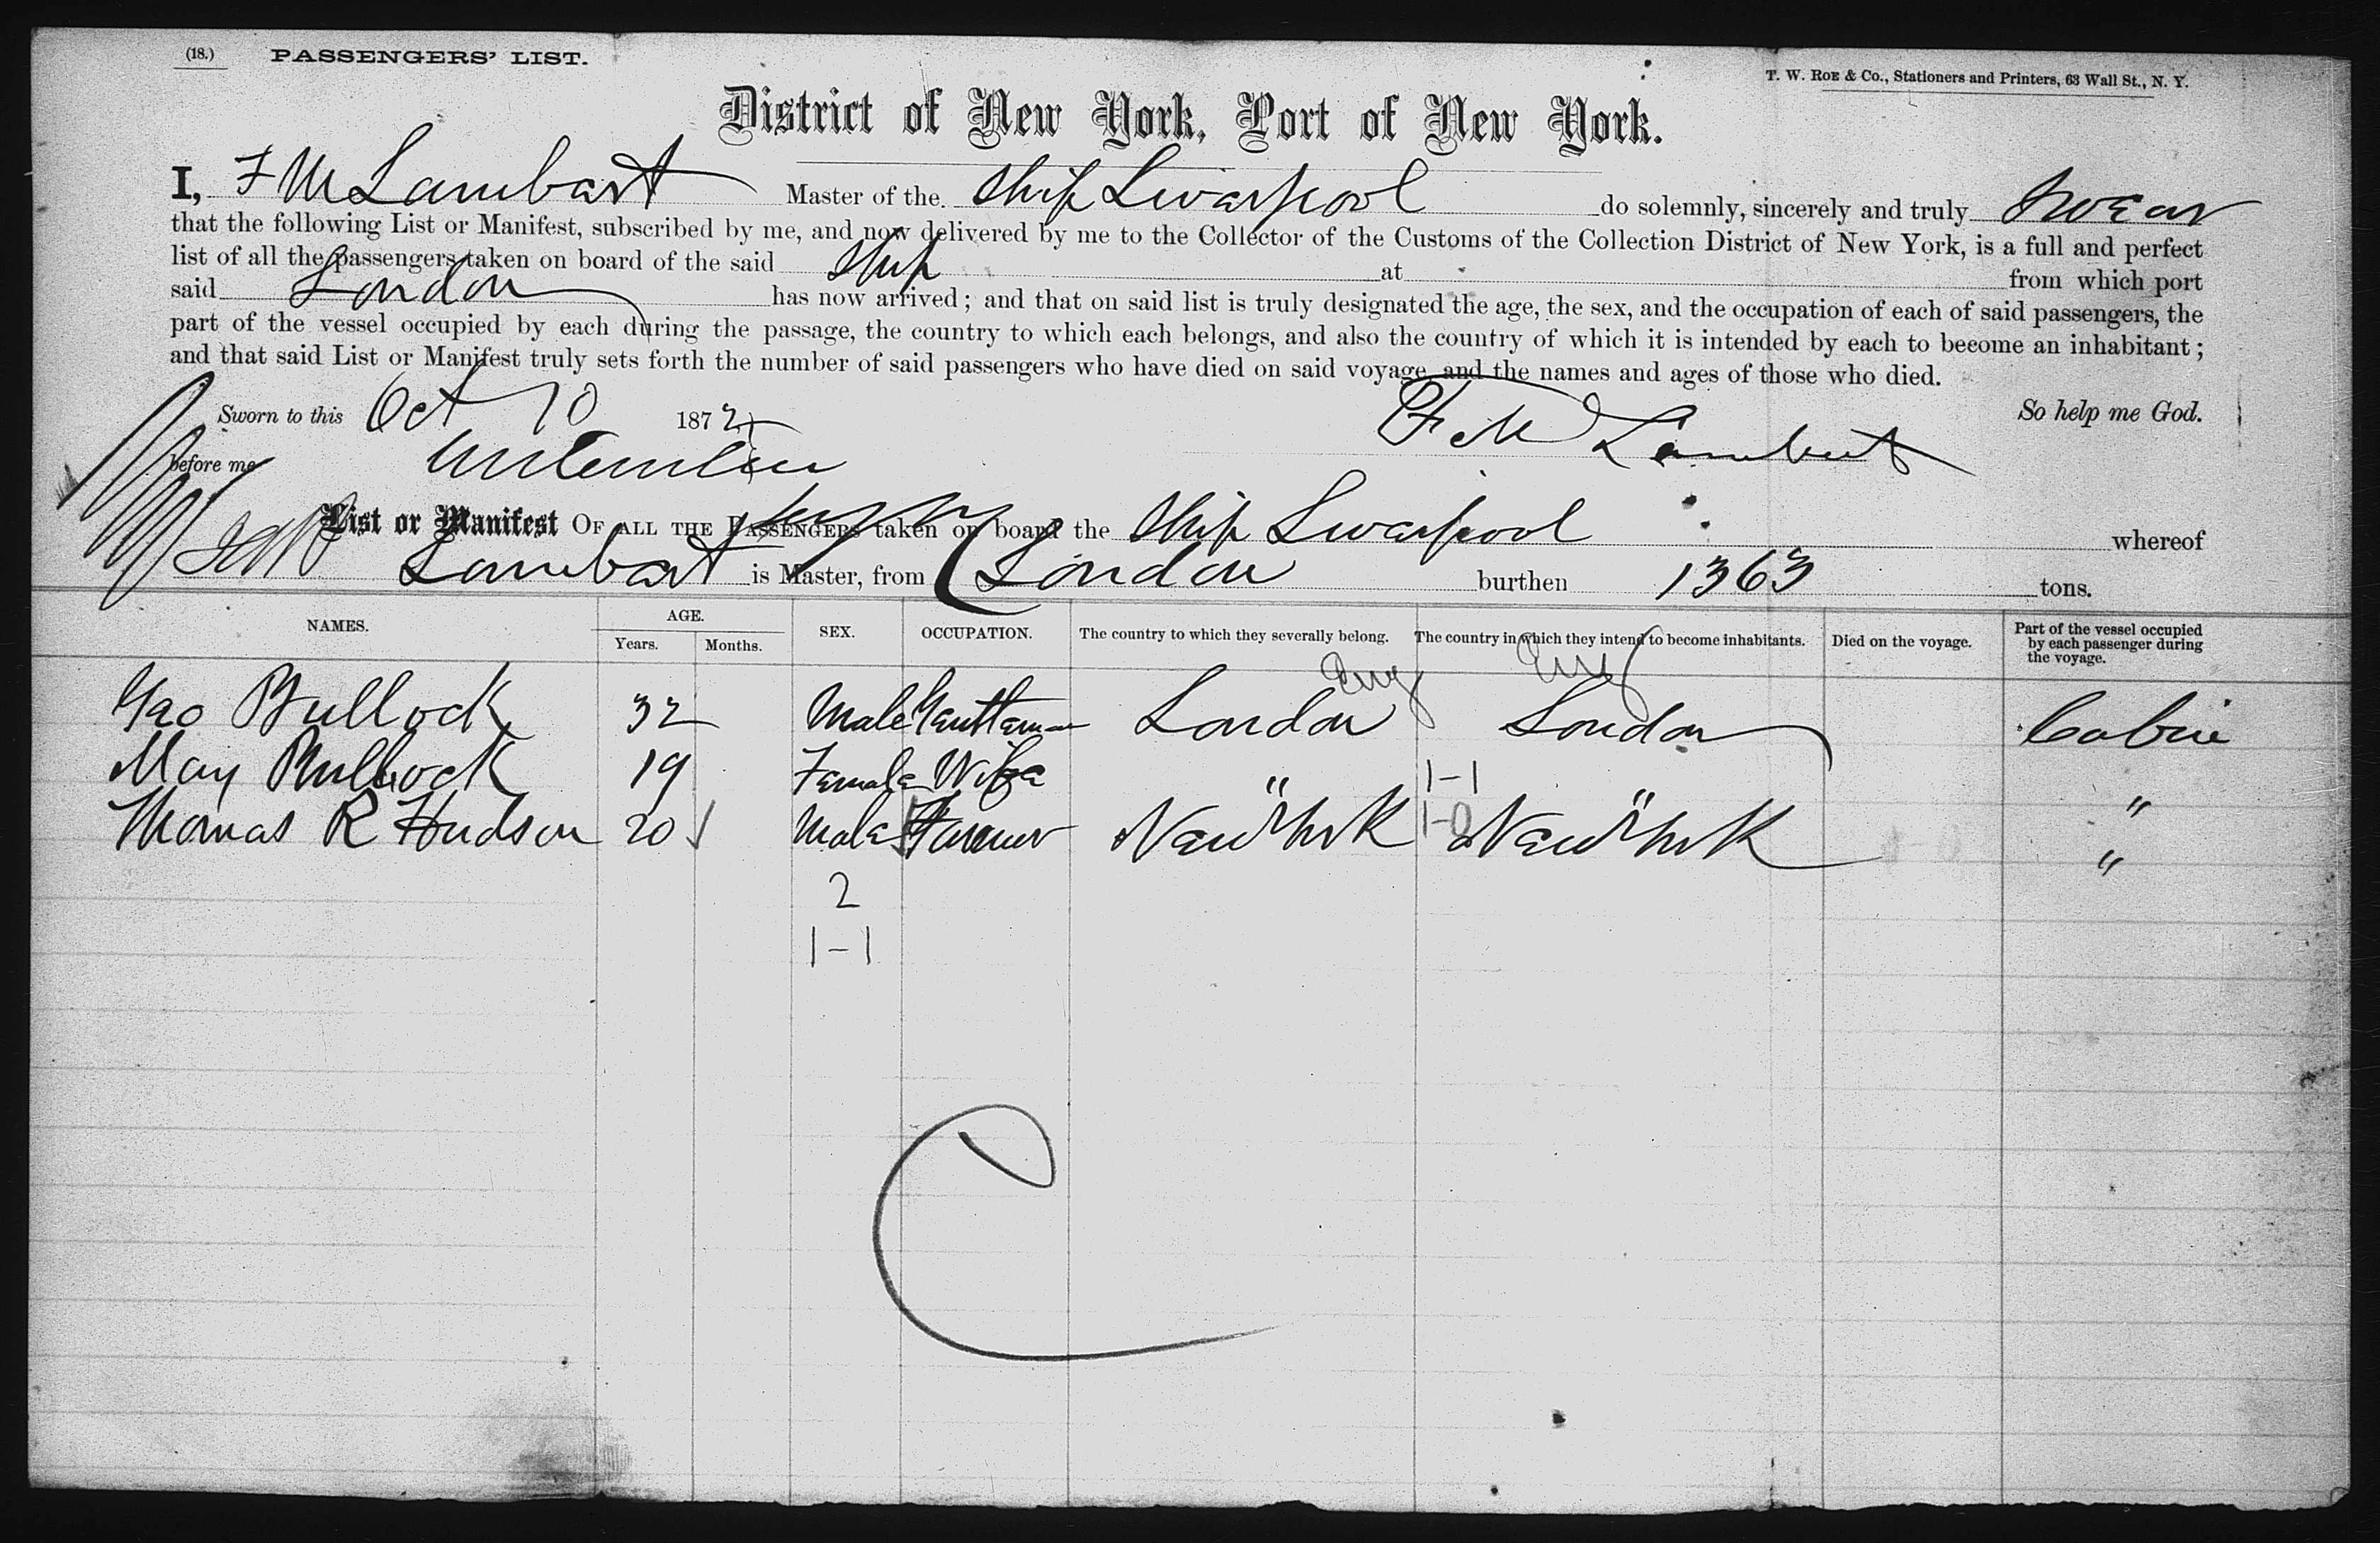 (18.) PASSENGERS' LIST.
T. W. ROE & Co., Stationers and Printers, 63 Wall St., N. Y.
District of New York, Port of New York.
I, F M Lambart Master of the Ship Livarpool do solemnly, sincerely and truly swear
that the following List or Manifest, subscribed by me, and now delivered by me to the Collector of the Customs of the Collection District of New York, is a full and perfect
list of all the passengers taken on board of the said Ship at from which port
said London has now arrived; and that on said list is truly designated the age, the sex, and the occupation of each of said passengers, the
part of the vessel occupied by each during the passage, the country to which each belongs, and also the country of which it is intended by each to become an inhabitant;
and that said List or Manifest truly sets forth the number of said passengers who have died on said voyage, and the names and ages of those who died.
Sworn to this Oct 10 1872 So help me God.
before me F M Lambert
List or Manifest OF ALL THE PASSENGERS taken on board the Ship Livarpool whereof
Lambart is Master, from London burthen 1363 tons.
NAMES. AGE. Years. Months. SEX. OCCUPATION. The country to which they severally belong. The country in which they intend to become inhabitants. Died on the voyage. Part of the vessel occupied by each passenger during the voyage.
Eng Eng
Geo Bullock 32 Male Gentleman London London Cabin
Mary Bullock 19 Female Wife " 1-1 " "
Thomas R Hudson 20 Male Farmer New York 1-0 New York "
2
1-1